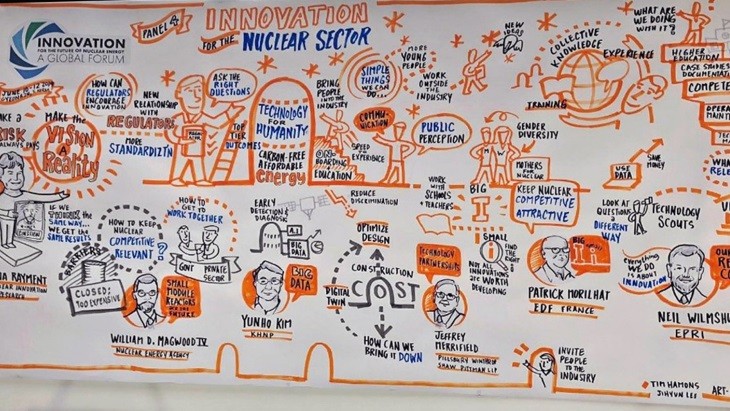 PANEL 4
INNOVATION
FOR THE
NUCLEAR SECTOR
INNOVATION
FOR THE FUTURE OF NUCLEAR ENERGY
A GLOBAL FORUM
HOW CAN
REGULATORS
ENCOURAGE
INNOVATION
NEW
RELATIONSHIP
WITH
REGULATORS
MORE
STANDARDIZT'N
ASK THE
RIGHT
QUESTIONS
TOP
TIER
OUTCOMES
MAKE THE
VISION
A
Reality
RISK
ALWAYS PAYS
TECHNOLOGY
FOR
HUMANITY
CARBON-FREE
AFFORDABLE
energy
BRING
PEOPLE
INTO THE
INDUSTRY
ON-
BOARDING
EDUCATION
SIMPLE
THINGS
WE CAN
DO...
MORE
YOUNG
PEOPLE
WORK
OUTSIDE
THE
INDUSTRY
COMMUNICATION
SPEED TO
EXPERIENCE
PUBLIC
PERCEPTION
NEW
IDEAS
COLLECTIVE
KNOWLEDGE
EXPERIENCE
TRAINING
GENDER
DIVERSITY
MOTHERS
FOR
NUCLEAR
WHAT ARE
WE DOING
WITH IT?
HIGHER
EDUCATION
CASE STUDIES
COMPETE
USE
DATA
SAVE
MONEY
IF WE
THE
SAME WAY...
WE GET THE
SAME RESULT
RAYMENT
HOW TO KEEP
NUCLEAR
COMPETITIVE
RELEVANT
?
BARRIERS
CLOSED:
TOO EXPENSIVE
HOW TO
GET TO
WORK TOGETHER
GOV'T
PRIVATE
SECTOR
SMALL
MODULE
REACTORS
ARE THE
FUTURE
WILLIAM D. MAGWOOD IV
NUCLEAR ENERGY AGENCY
EARLY
DETECTION &
DIAGNOSIS
A.I.
BIG
DATA
BIG
DATA
YUNHO KIM
KHNP
REDUCE
DISCRIMINATION
OPTIMIZE
DESIGN
CONSTRUCTION
COST
DIGITAL
TWIN
HOW CAN WE
BRING IT DOWN
WORK
WITH
SCHOOLS
TEACHERS
TECHNOLOGY
PARTNERSHIPS
JEFFREY
MERRIFIELD
PILLSBURY WINTHROP
SHAW PITTMAN LLP
BIG
I
SMALL
i
FIND
THE
RIGHT
NOT ALL
INNOVATIONS
ARE WORTH
DEVELOPING
KEEP NUCLEAR
COMPETITIVE
ATTRACTIVE
BIG
PATRICK MORILHAT
EDF FRANCE
LOOK AT
QUESTIONS
A
DIFFERENT
WAY
TECHNOLOGY
SCOUTS
everything
WE DO
IS ABOUT
INNOVATION
NEIL WILMSHU
EPRI
INVITE
PEOPLE TO
THE INDUSTRY
TIM HAMONS
JIHYUN LEE
ART-